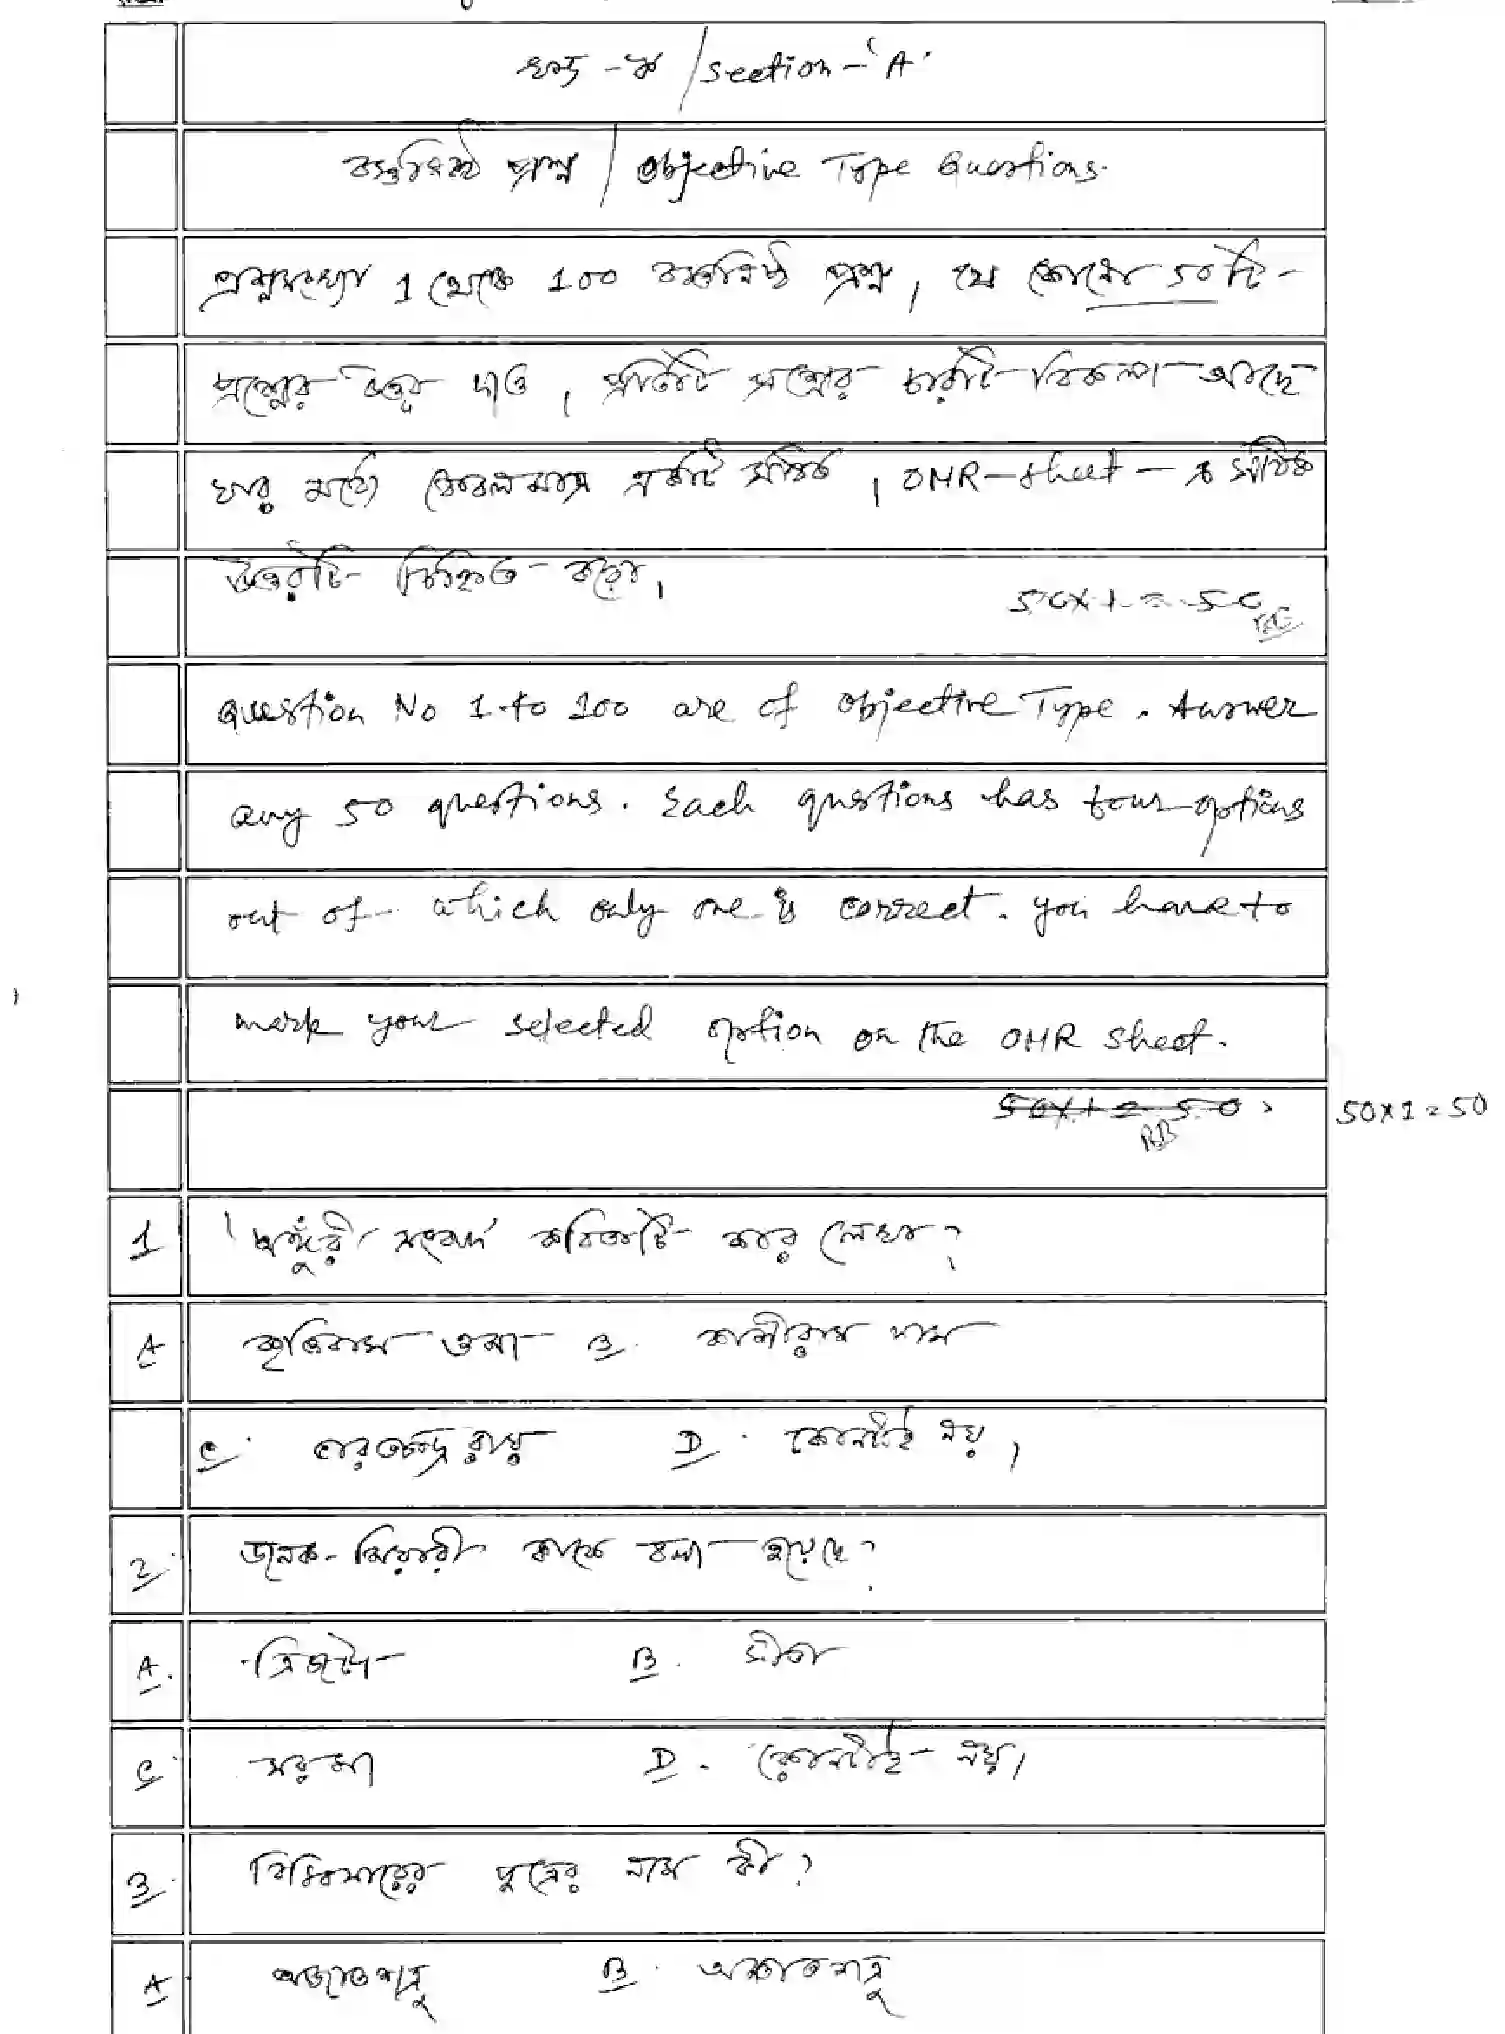 খণ্ড - ক / Section - 'A'
বস্তুনিষ্ঠ প্রশ্ন / Objective Type Questions.
প্রশ্নসংখ্যা 1 থেকে 100 বস্তুনিষ্ঠ প্রশ্ন, যে কোনো 50টি
প্রশ্নের উত্তর দাও। প্রতিটি প্রশ্নের চারটি বিকল্প আছে
যার মধ্যে কেবলমাত্র একটি সঠিক। OMR-sheet - এ সঠিক
উত্তরটি চিহ্নিত করো।
50x1=50
Question No 1 to 100 are of objective Type. Answer
any 50 questions. Each questions has four options
out of which only one is correct. you have to
mark your selected option on the OMR sheet.
50x1=50 50x1=50
1 'অঙ্গুরী সংবাদ' কবিতাটি কার লেখা?
A কৃত্তিবাস ওঝা B. কাশীরাম দাস
C. ভারতচন্দ্র রায় D. কোনটাই নয়।
2. জনক ঝিয়ারী কাকে বলা হয়েছে?
A. ত্রিজটা B. সীতা
C সরমা D. কোনটাই নয়।
3. বিম্বিসারের পুত্রের নাম কী?
A অজাতশত্রু B.